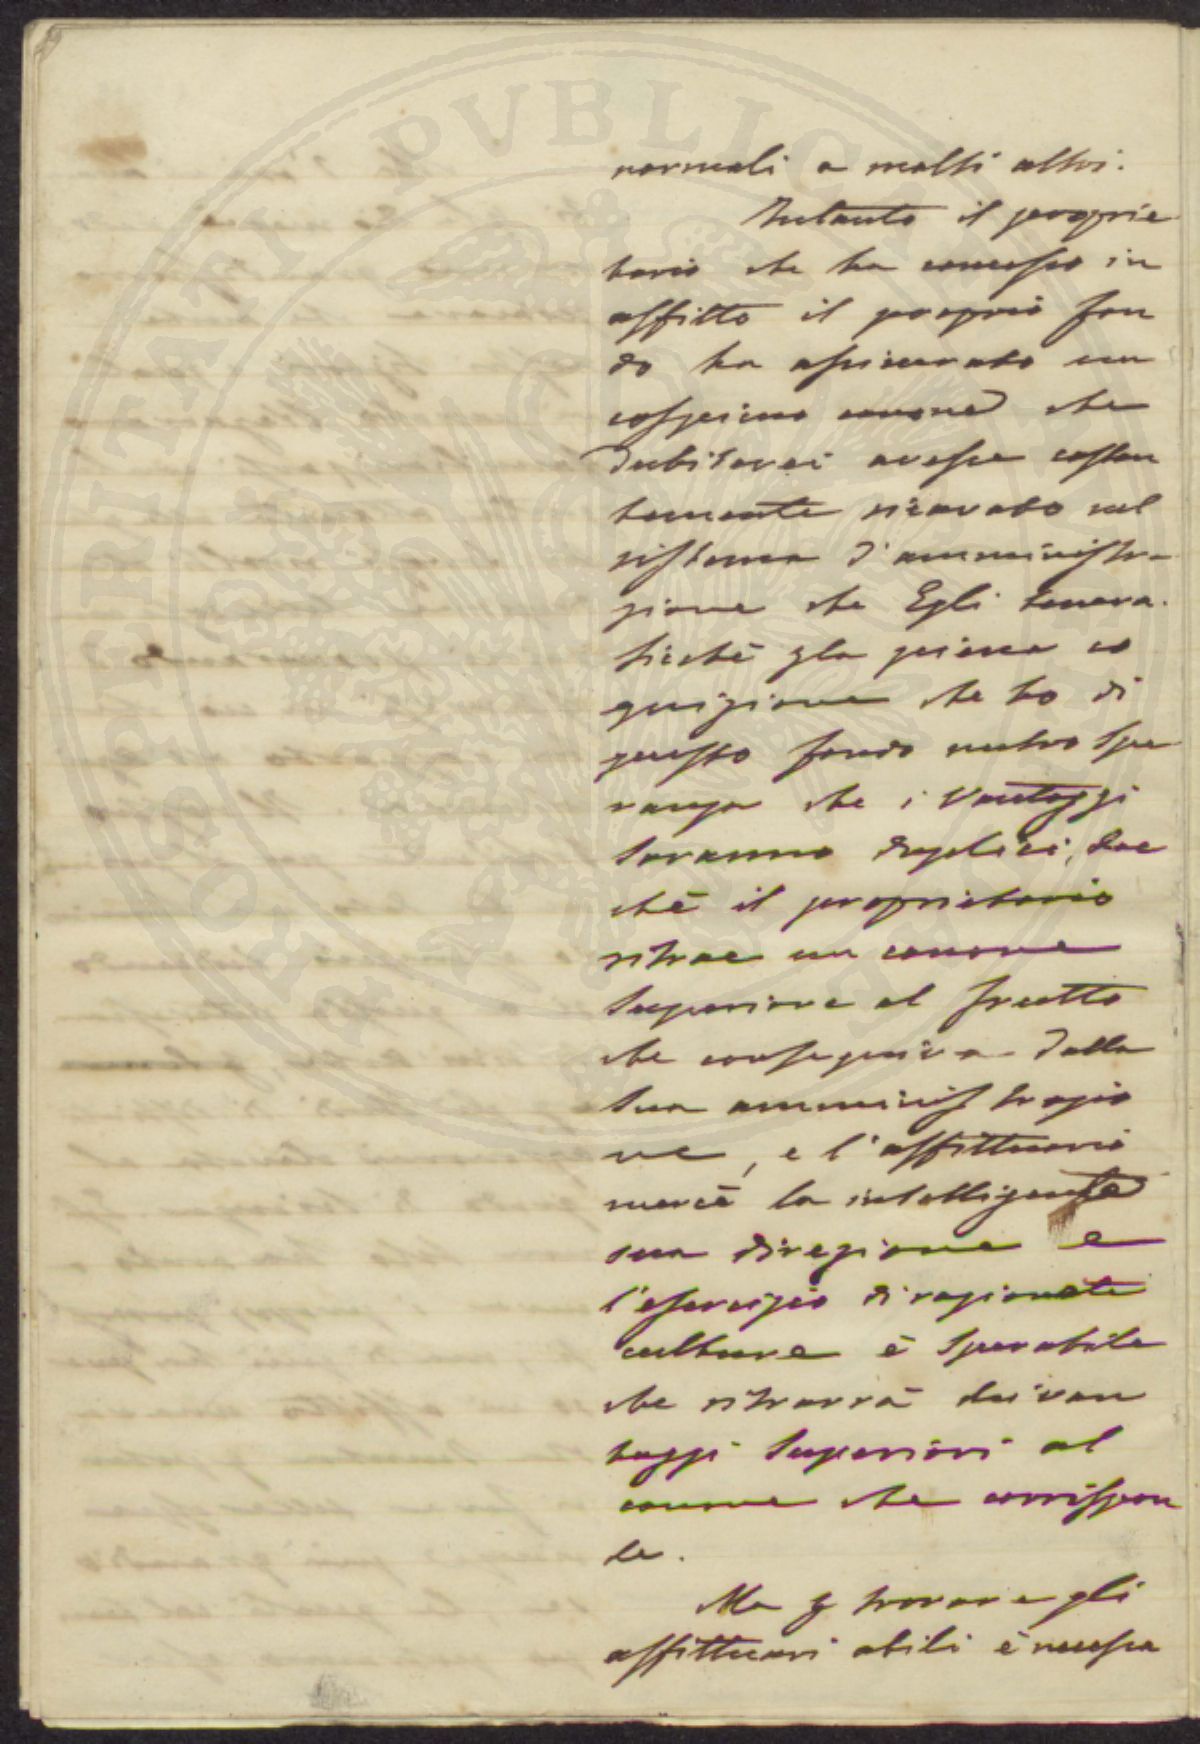 PROSPERITATI PVBLICAE
normali a molti altri.
Intanto il proprie
tario che ha concesso in
affitto il proprio fon
do ha assicurato un
cospicuo canone che
dubiterei avesse costan
temente ricavato nel
sistema d'amministra-
zione che Egli teneva.
Sicchè p la piena co
gnizione che ho di
questo fondo nutro spe
ranza che i vantaggi
saranno duplici, dac
chè il proprietario
ritrae un canone
superiore al frutto
che conseguiva dalla
sua amministrazio
ne, e l'affittuario
mercè la intelligente
sua direzione e
l'esercizio di ragionate
culture è sperabile
che ritrarrà dei van
taggi superiori al
canone che corrispon
de.
Ma p trovare gli
affittuari abili è necessa